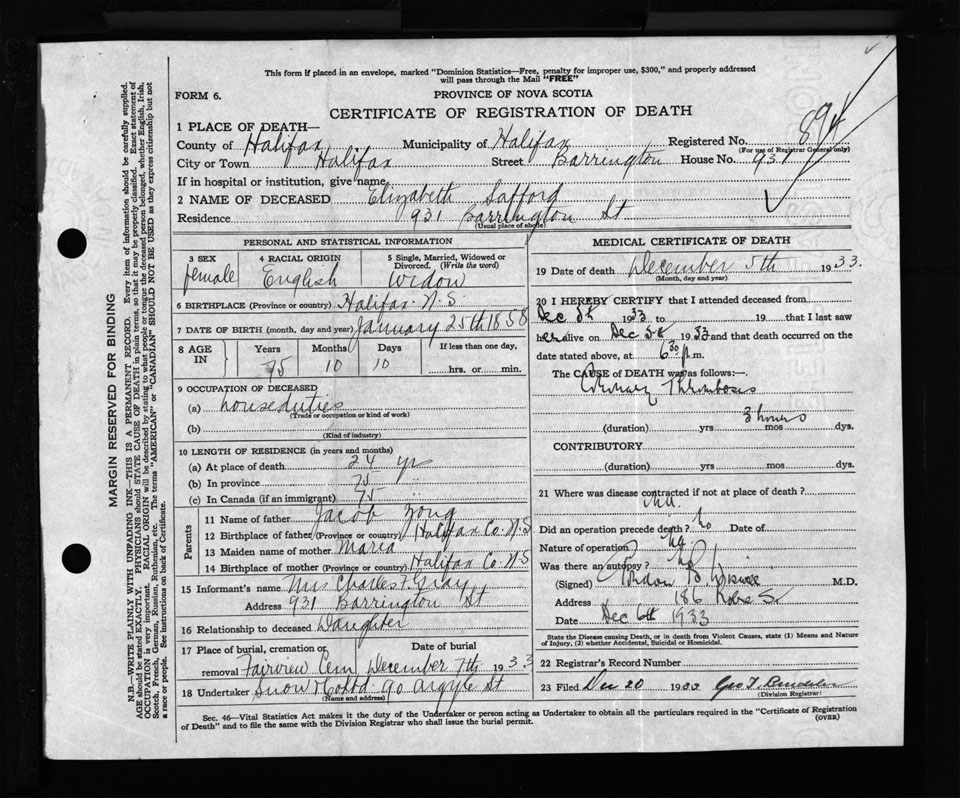 This form if placed in an envelope, marked "Dominion Statistics—Free, penalty for improper use, $300," and properly addressed
will pass through the Mail "FREE"
FORM 6.
PROVINCE OF NOVA SCOTIA
CERTIFICATE OF REGISTRATION OF DEATH
1 PLACE OF DEATH—
County of Halifax Municipality of Halifax Registered No. 894
(For use of Registrar General only)
City or Town Halifax Street Barrington House No. 931
If in hospital or institution, give name
2 NAME OF DECEASED Elizabeth Safford
Residence 931 Barrington St
(Usual place of abode)
PERSONAL AND STATISTICAL INFORMATION
3 SEX 4 RACIAL ORIGIN 5 Single, Married, Widowed or Divorced. (Write the word)
female English Widow
6 BIRTHPLACE (Province or country) Halifax N.S.
7 DATE OF BIRTH (month, day and year) January 25th 1858
8 AGE IN Years Months Days If less than one day,
75 10 10 hrs. or min.
9 OCCUPATION OF DECEASED
(a) houseduties
(Trade or occupation or kind of work)
(b)
(Kind of industry)
10 LENGTH OF RESIDENCE (in years and months)
(a) At place of death 24 yrs
(b) In province 75 "
(c) In Canada (if an immigrant) 75 "
Parents
11 Name of father Jacob Zong
12 Birthplace of father (Province or country) Halifax Co. N.S
13 Maiden name of mother Maria
14 Birthplace of mother (Province or country) Halifax Co N S
15 Informant's name Mrs Charles F. Gray
Address 931 Barrington St
16 Relationship to deceased Daughter
17 Place of burial, cremation or removal Date of burial
Fairview Cem December 7th 1933
18 Undertaker Snow & Co Ltd 90 Argyle St
(Name and address)
MEDICAL CERTIFICATE OF DEATH
19 Date of death December 5th 1933.
(Month, day and year)
20 I HEREBY CERTIFY that I attended deceased from
Dec 5th 1933 to 19 that I last saw
her alive on Dec 5th 1933 and that death occurred on the
date stated above, at 6 30 p.m.
The CAUSE of DEATH was as follows:—
Coronary Thrombosis
3 hours
(duration) yrs mos dys.
CONTRIBUTORY
(duration) yrs mos dys.
21 Where was disease contracted if not at place of death?
Did an operation precede death? No Date of
Nature of operation
Was there an autopsy? No
(Signed) M.D.
Address 186
Date Dec 6th 1933
State the Disease causing Death, or in death from Violent Causes, state (1) Means and Nature
of Injury, (2) whether Accidental, Suicidal or Homicidal.
22 Registrar's Record Number
23 Filed Dec 20 1933
(Division Registrar)
Sec. 46—Vital Statistics Act makes it the duty of the Undertaker or person acting as Undertaker to obtain all the particulars required in the "Certificate of Registration
of Death" and to file the same with the Division Registrar who shall issue the burial permit.
(OVER)
MARGIN RESERVED FOR BINDING
N.B.—WRITE PLAINLY WITH UNFADING INK—THIS IS A PERMANENT RECORD. Every item of information should be carefully supplied.
AGE should be stated EXACTLY. PHYSICIANS should STATE CAUSE OF DEATH in plain terms, so that it may be properly classified. Exact statement of
OCCUPATION is very important. RACIAL ORIGIN will be described by stating to what people or tongue the deceased person belonged, whether English, Irish,
Scotch, French, German, Russian, Ruthenian, etc. The terms "AMERICAN" or "CANADIAN" SHOULD NOT BE USED as they express citizenship but not
a race or people. See instructions on back of Certificate.